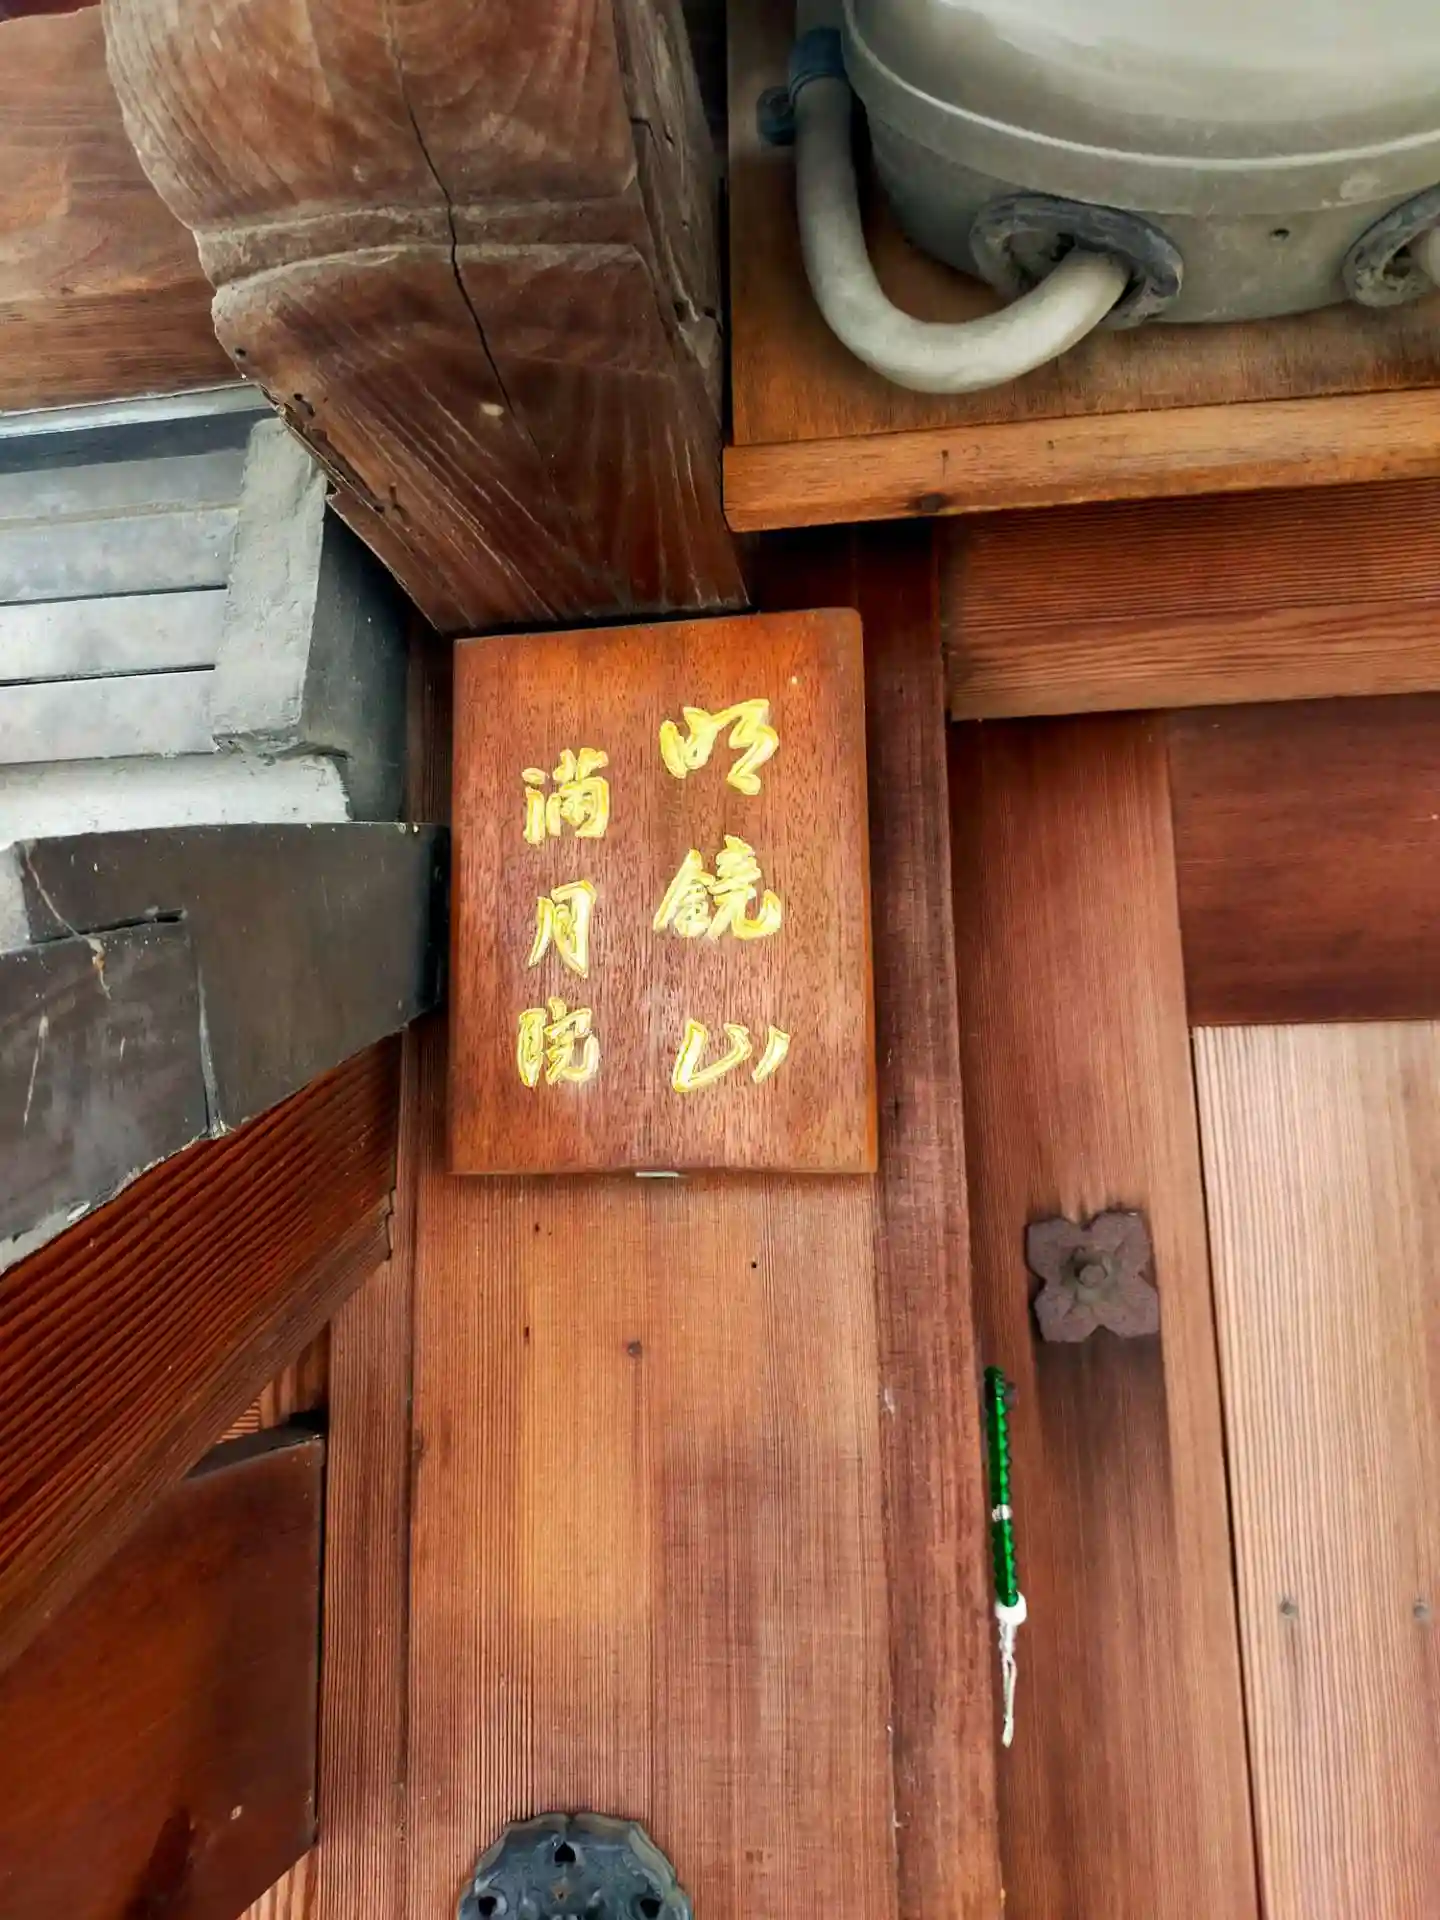 明鏡山
満月院